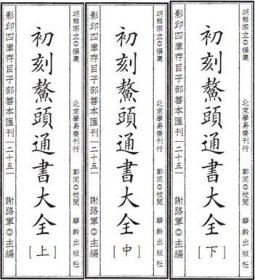 明熊宗立◎撰集
北京學易齋刊行
鄭同◎校閱
華齡出版社
初刻鰲頭通書大全
[上]
影印四庫存目子部善本匯刊[二十五]
謝路軍◎主編
明熊宗立◎撰集
北京學易齋刊行
鄭同◎校閱
華齡出版社
初刻鰲頭通書大全
[中]
影印四庫存目子部善本匯刊[二十五]
謝路軍◎主編
明熊宗立◎撰集
北京學易齋刊行
鄭同◎校閱
華齡出版社
初刻鰲頭通書大全
[下]
影印四庫存目子部善本匯刊[二十五]
謝路軍◎主編